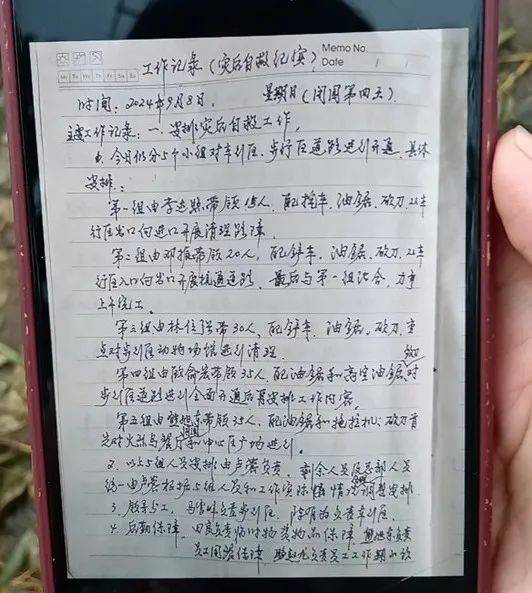 Memo No.
Date / /
Mo Tu We Th Fr Sa Su
工作记录(灾后自救纪实)
时间:2024年9月8日, 星期日(闭园第四天).
主要工作记录:一、安排灾后自救工作,
1. 今日仍分5个小组对车行区、步行区道路进行开通,具体
安排:
第一组由李进 带领15人,配挖车,油锯,砍刀,从车
行区出口向进口开展清理路障
第二组由邓 带领20人,配铲车,油锯、砍刀,从车
行区入口向出口开展疏通道路,最后与第一组汇合,力争
上午完工。
第三组由林位强带30人,配铲车,油锯、砍刀,重
点对步行区动物场馆进行清理.
第四组由 带领35人,配油锯和高空油锯,砍刀对
步行区道路进行全面开通后再安排工作内容,
第五组由熊 带领35人,配油锯和拖拉机;砍刀首
先对火烈鸟餐厅和中心区广场进行。
2. 以上5组人员安排由卢 负责,剩余人员应急部人员
统一由卢 根据5组人员和工作实际情况调整安排
3. 分工, 负责步行区, 负责车行区,
4. 后勤保障, 负责临时物资物品保障, 负责
员工用餐保障 负责员工工作